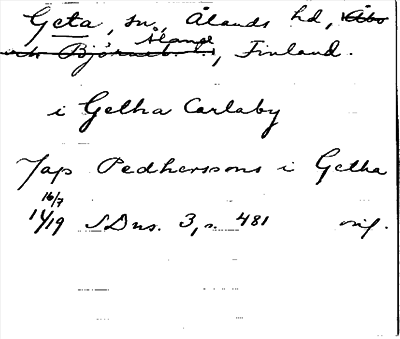 Geta, sn, Ålands hd, Åbo
och Björneb. l., Ålands, Finland.
i Getha Carlaby
Jap Pedherssons i Getha
16/7
14/19 SDns. 3, s. 481 orig.